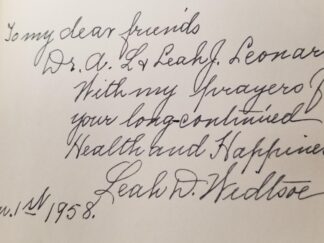 To my dear friends
Dr. A. L & Leah J. Leonar
With my prayers f
your long-continued
Health and Happines
Leah D. Widtsoe
n. 1st 1958.